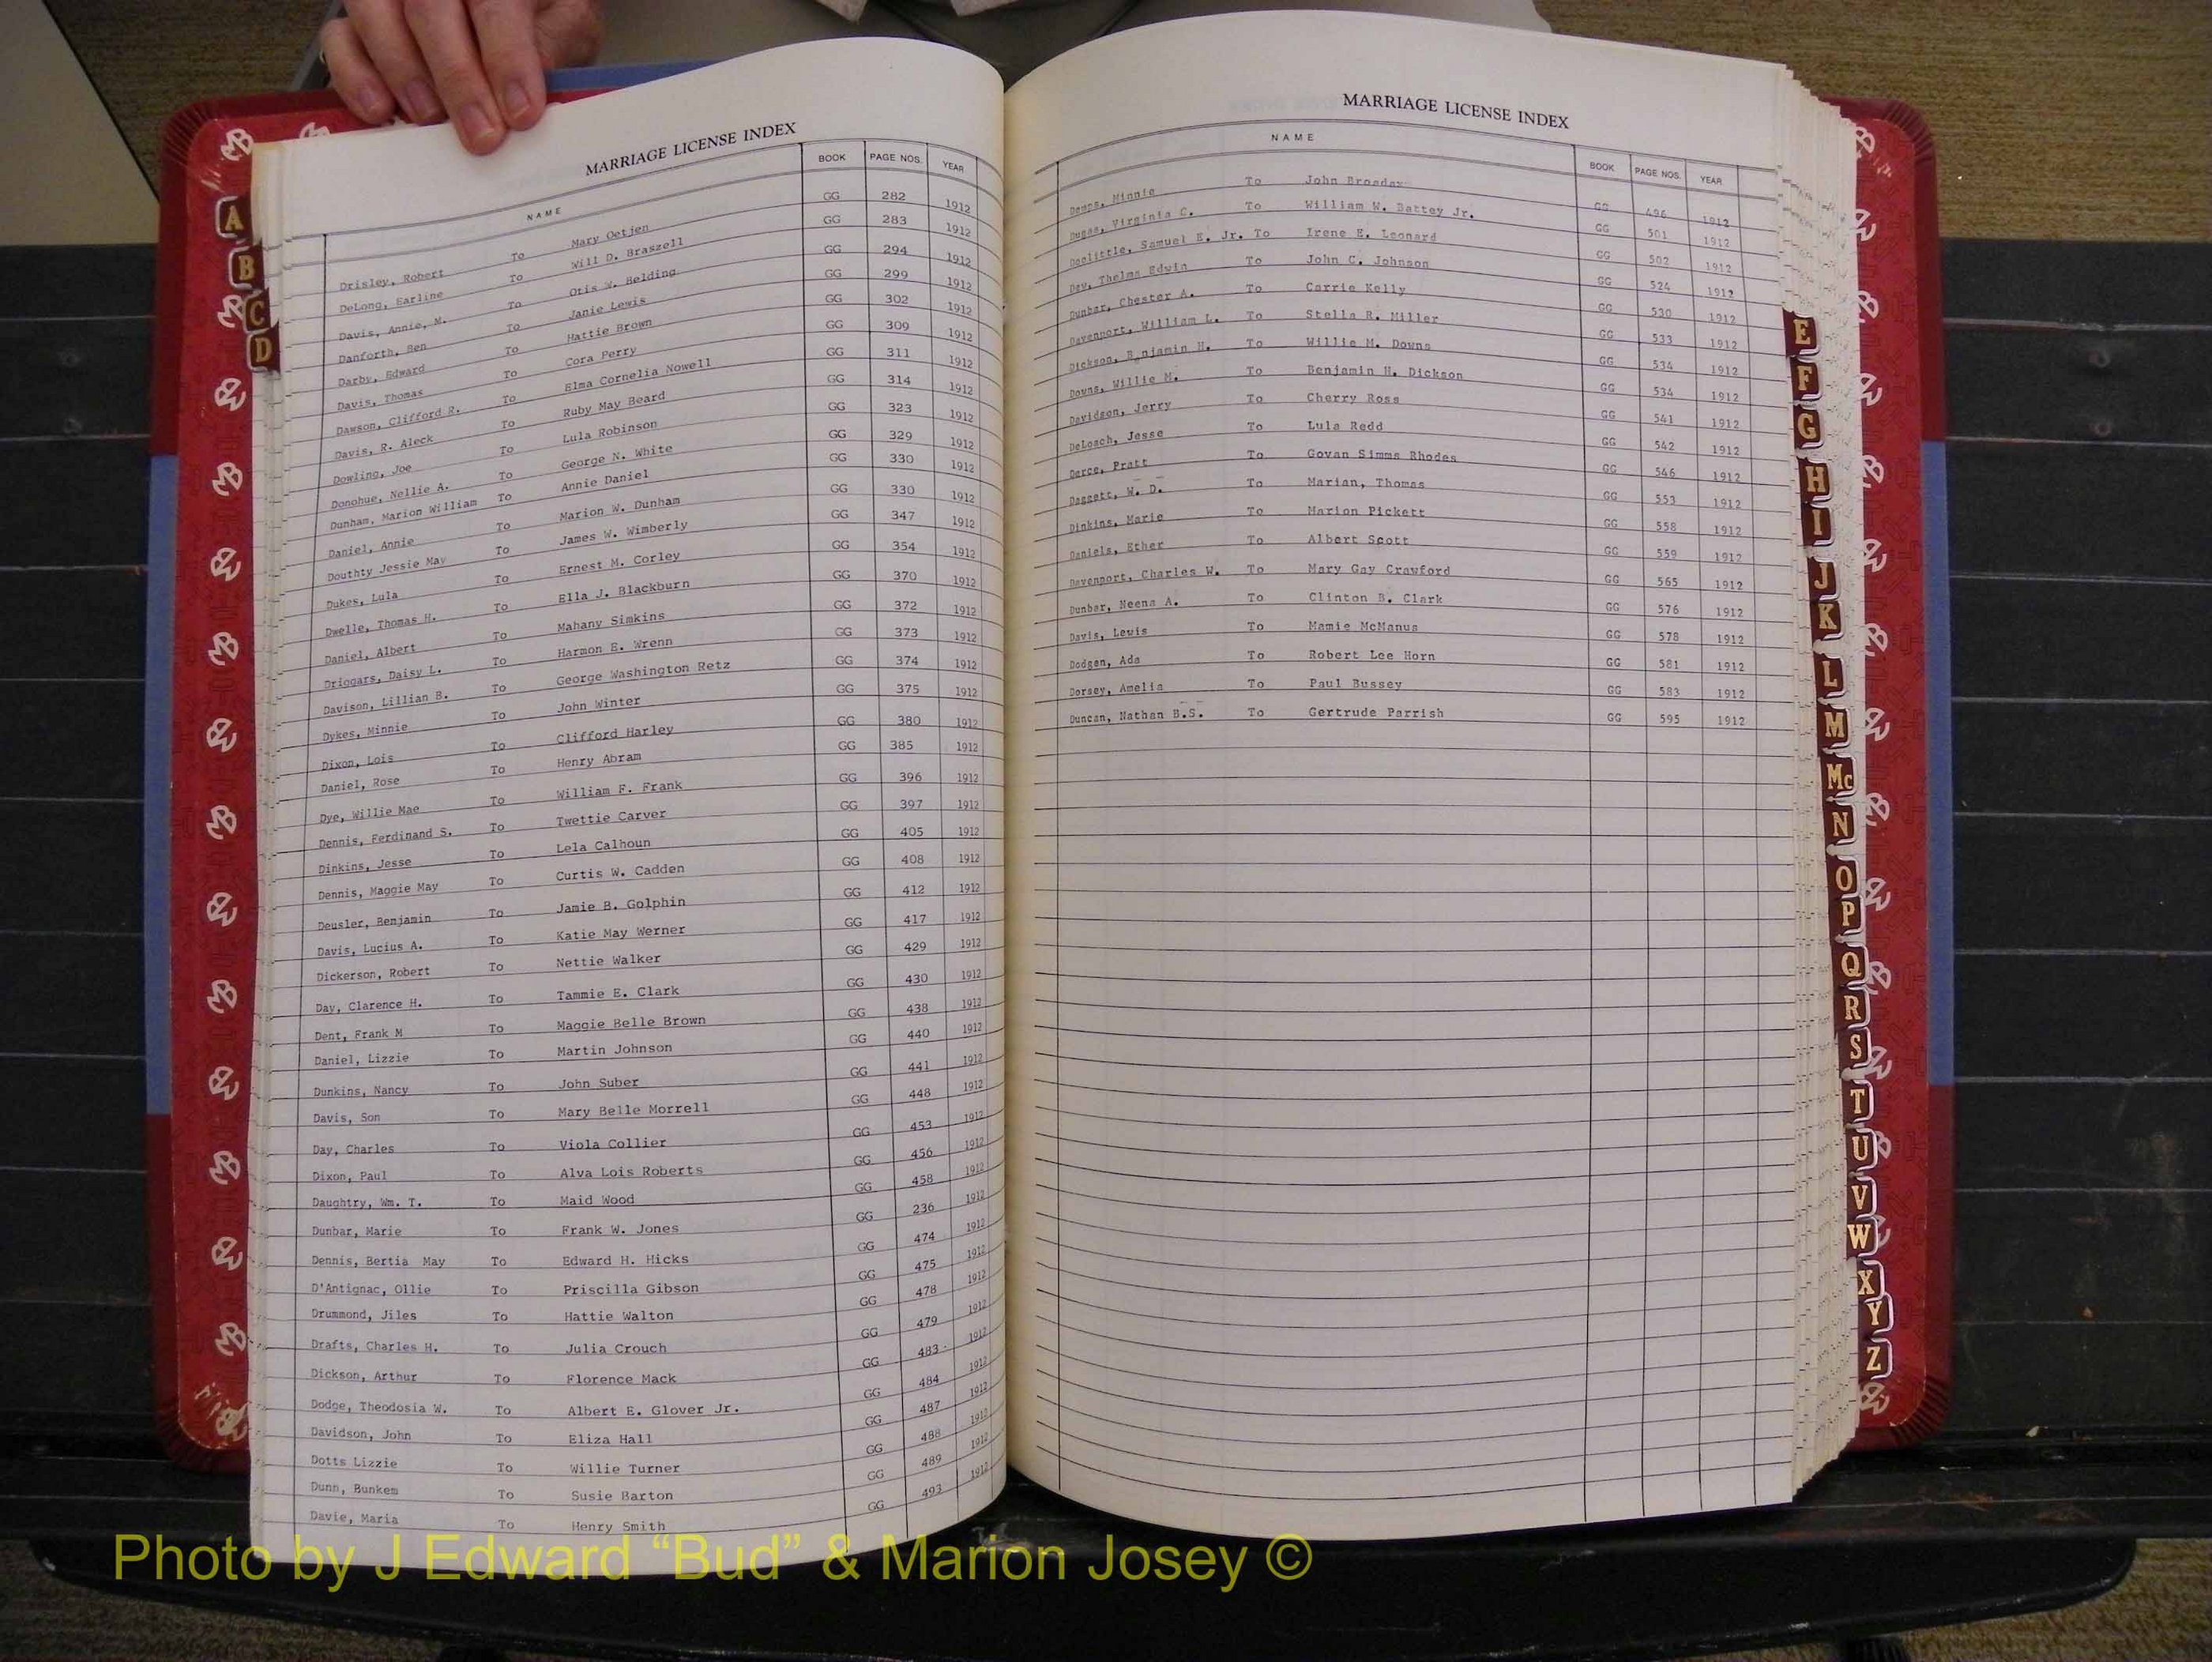 MARRIAGE LICENSE INDEX
NAME BOOK PAGE NOS. YEAR
Drisley, Robert To Mary Oetjen GG 282 1912
DeLong, Earline To Will D. Braszell GG 283 1912
Davis, Annie, M. To Otis W. Belding GG 294 1912
Danforth, Ben To Janie Lewis GG 299 1912
Darby, Edward To Hattie Brown GG 302 1912
Davis, Thomas To Cora Perry GG 309 1912
Dawson, Clifford R. To Elma Cornelia Nowell GG 311 1912
Davis, R. Aleck To Ruby May Beard GG 314 1912
Dowling, Joe To Lula Robinson GG 323 1912
Donohue, Nellie A. To George N. White GG 329 1912
Dunham, Marion William To Annie Daniel GG 330 1912
Daniel, Annie To Marion W. Dunham GG 330 1912
Douthty Jessie May To James W. Wimberly GG 347 1912
Dukes, Lula To Ernest M. Corley GG 354 1912
Dwelle, Thomas H. To Ella J. Blackburn GG 370 1912
Daniel, Albert To Mahany Simkins GG 372 1912
Driggars, Daisy L. To Harmon E. Wrenn GG 373 1912
Davison, Lillian B. To George Washington Retz GG 374 1912
Dykes, Minnie To John Winter GG 375 1912
Dixon, Lois To Clifford Harley GG 380 1912
Daniel, Rose To Henry Abram GG 385 1912
Dye, Willie Mae To William F. Frank GG 396 1912
Dennis, Ferdinand S. To Twettie Carver GG 397 1912
Dinkins, Jesse To Lela Calhoun GG 405 1912
Dennis, Maggie May To Curtis W. Cadden GG 408 1912
Deusler, Benjamin To Jamie B. Golphin GG 412 1912
Davis, Lucius A. To Katie May Werner GG 417 1912
Dickerson, Robert To Nettie Walker GG 429 1912
Day, Clarence H. To Tammie E. Clark GG 430 1912
Dent, Frank M To Maggie Belle Brown GG 438 1912
Daniel, Lizzie To Martin Johnson GG 440 1912
Dunkins, Nancy To John Suber GG 441 1912
Davis, Son To Mary Belle Morrell GG 448 1912
Day, Charles To Viola Collier GG 453 1912
Dixon, Paul To Alva Lois Roberts GG 456 1912
Daughtry, Wm. T. To Maid Wood GG 458 1912
Dunbar, Marie To Frank W. Jones GG 236 1912
Dennis, Bertia May To Edward H. Hicks GG 474 1912
D'Antignac, Ollie To Priscilla Gibson GG 475 1912
Drummond, Jiles To Hattie Walton GG 478 1912
Drafts, Charles H. To Julia Crouch GG 479 1912
Dickson, Arthur To Florence Mack GG 483 1912
Dodge, Theodosia W. To Albert E. Glover Jr. GG 484 1912
Davidson, John To Eliza Hall GG 487 1912
Dotts Lizzie To Willie Turner GG 488 1912
Dunn, Bunkem To Susie Barton GG 489 1912
Davie, Maria To Henry Smith GG 493 1912
MARRIAGE LICENSE INDEX
NAME BOOK PAGE NOS. YEAR
Downs, Minnie To John Broaday GG 496 1912
Dugas, Virginia C. To William W. Battey Jr. GG 501 1912
Doolittle, Samuel E. Jr. To Irene E. Leonard GG 502 1912
Day, Thelma Edwin To John C. Johnson GG 524 1912
Dunbar, Chester A. To Carrie Kelly GG 530 1912
Davenport, William L. To Stella R. Miller GG 533 1912
Dickson, Benjamin H. To Willie M. Downs GG 534 1912
Downs, Willie M. To Benjamin H. Dickson GG 534 1912
Davidson, Jerry To Cherry Ross GG 541 1912
DeLoach, Jesse To Lula Redd GG 542 1912
Darce, Pratt To Govan Simms Rhodes GG 546 1912
Daggett, W. D. To Marian, Thomas GG 553 1912
Dinkins, Marie To Marion Pickett GG 558 1912
Daniels, Ether To Albert Scott GG 559 1912
Davenport, Charles W. To Mary Gay Crawford GG 565 1912
Dunbar, Neena A. To Clinton B. Clark GG 576 1912
Davis, Lewis To Mamie McManus GG 578 1912
Dodgen, Ada To Robert Lee Horn GG 581 1912
Dorsey, Amelia To Paul Bussey GG 583 1912
Duncan, Nathan B.S. To Gertrude Parrish GG 595 1912
A
B
C
D
E
F
G
H
I
J
K
L
M
Mc
N
O
P
Q
R
S
T
U
V
W
X
Y
Z
Photo by J Edward “Bud” & Marion Josey ©